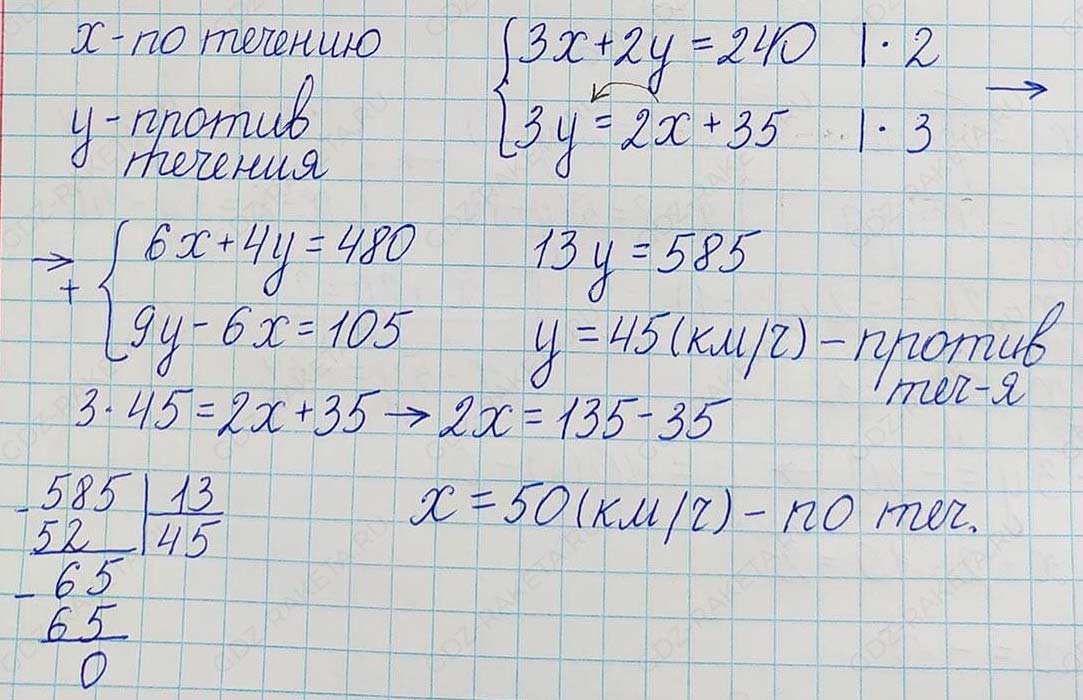 x - по течению
y - против
течения
{ 3x + 2y = 240 | · 2
3y = 2x + 35 | · 3 →
→ + { 6x + 4y = 480
9y - 6x = 105
13y = 585
y = 45 (км/ч) - против
теч-я
3 · 45 = 2x + 35 → 2x = 135 - 35
x = 50 (км/ч) - по теч.
- 585 | 13
52 | 45
- 65
65
0
GDZ-RAKETA.RU